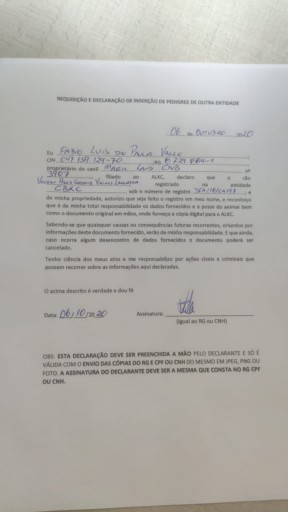 REQUISIÇÃO E DECLARAÇÃO DE INSERÇÃO DE PEDIGREE DE OUTRA ENTIDADE
06 de OUTUBRO de 20
Eu FABIO LUIS DE PAULA VALLE
CPF RG
proprietário do canil nº
3907 filiado ao ALKC, declaro que o cão
registrado na entidade
CBKC sob o número de registro é
de minha propriedade, autorizo que seja feito o registro em meu nome, e reconheço
que é de minha total responsabilidade os dados fornecidos e a posse do animal bem
como o documento original em mãos, onde forneço a cópia digital para o ALKC.
Sabendo-se que quaisquer causas ou consequências futuras recorrentes, oriundas por
informações deste documento fornecido, serão de minha responsabilidade. E que ainda,
caso ocorra algum desencontro de dados fornecidos o documento poderá ser
cancelado.
Tenho ciência dos meus atos e me responsabilizo por ações cíveis e criminais que
possam recorrer sobre as informações aqui declaradas.
O acima descrito é verdade e dou fé
Data: 06/10/2020 Assinatura:
(Igual ao RG ou CNH)
OBS: ESTA DECLARAÇÃO DEVE SER PREENCHIDA A MÃO PELO DECLARANTE E SÓ É
VÁLIDA COM O ENVIO DAS CÓPIAS DO RG E CPF OU CNH DO MESMO EM JPEG, PNG OU
FOTO. A ASSINATURA DO DECLARANTE DEVE SER A MESMA QUE CONSTA NO RG CPF
OU CNH.